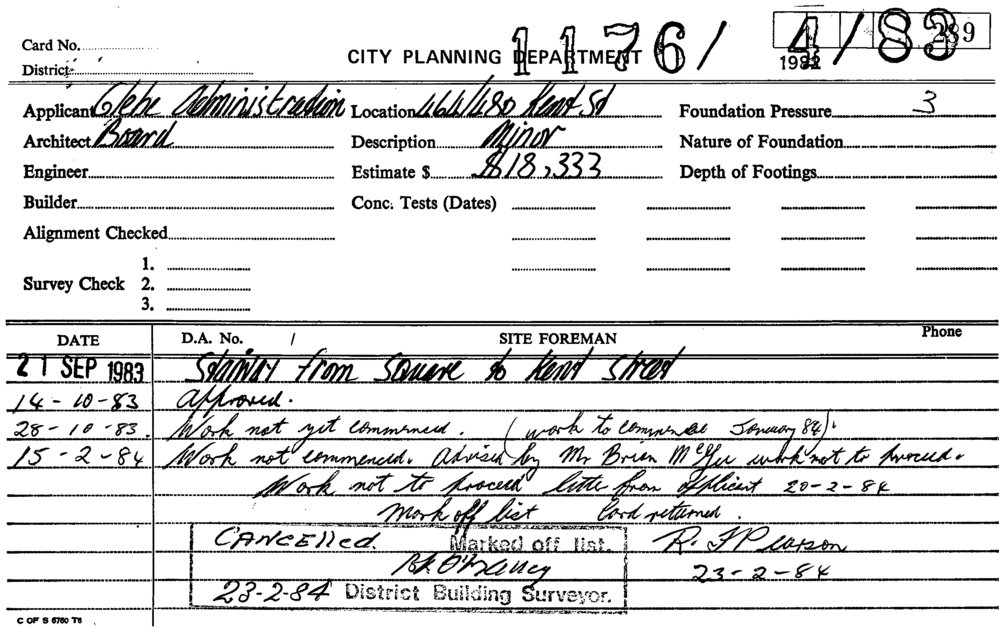 Card No.
District
CITY PLANNING DEPARTMENT
1176/ 4/83
1982
Applicant Glebe Administration Location 464/480 Kent St Foundation Pressure 3
Architect Board Description Minor Nature of Foundation
Engineer Estimate $ $18,333 Depth of Footings
Builder Conc. Tests (Dates)
Alignment Checked
1.
Survey Check 2.
3.
DATE D.A. No. / SITE FOREMAN Phone
21 SEP 1983 Stairway from Square to Kent Street
14-10-83 Approved.
28-10-83. Work not yet commenced. (work to commence January 84).
15-2-84 Work not commenced. Advised by Mr Brian McGee work not to proceed.
Work not to proceed letter from applicant 20-2-84
Mark off list Card returned.
CANCELLED. Marked off list. R. J Pearson
23-2-84
23-2-84 District Building Surveyor.
C OF S 6760 T6